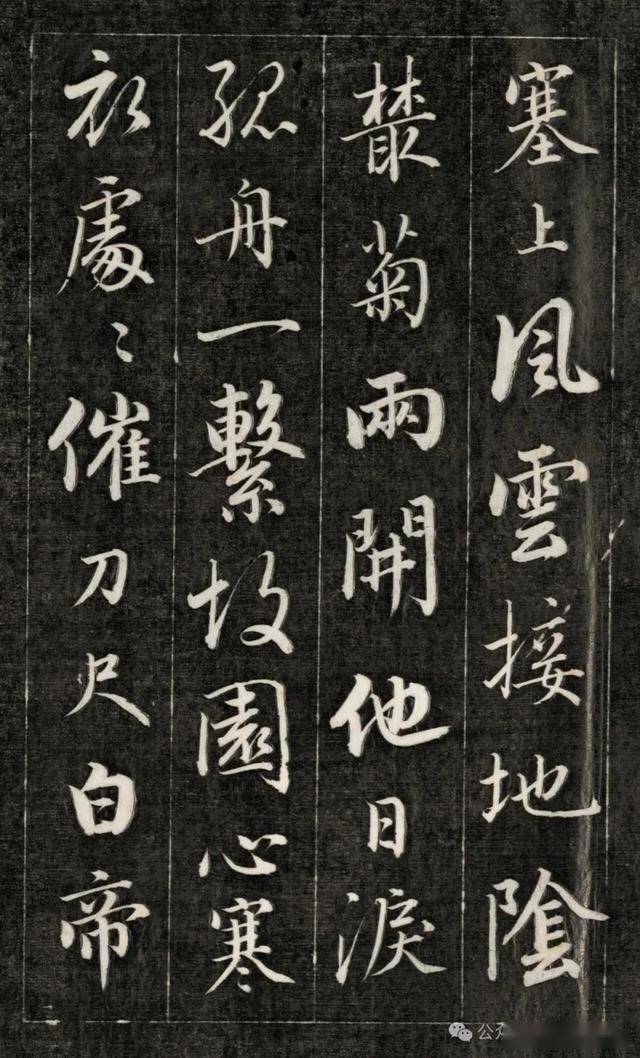 塞上風雲接地陰
叢菊兩開他日淚
孤舟一繫故園心寒
衣處〻催刀尺白帝
公众